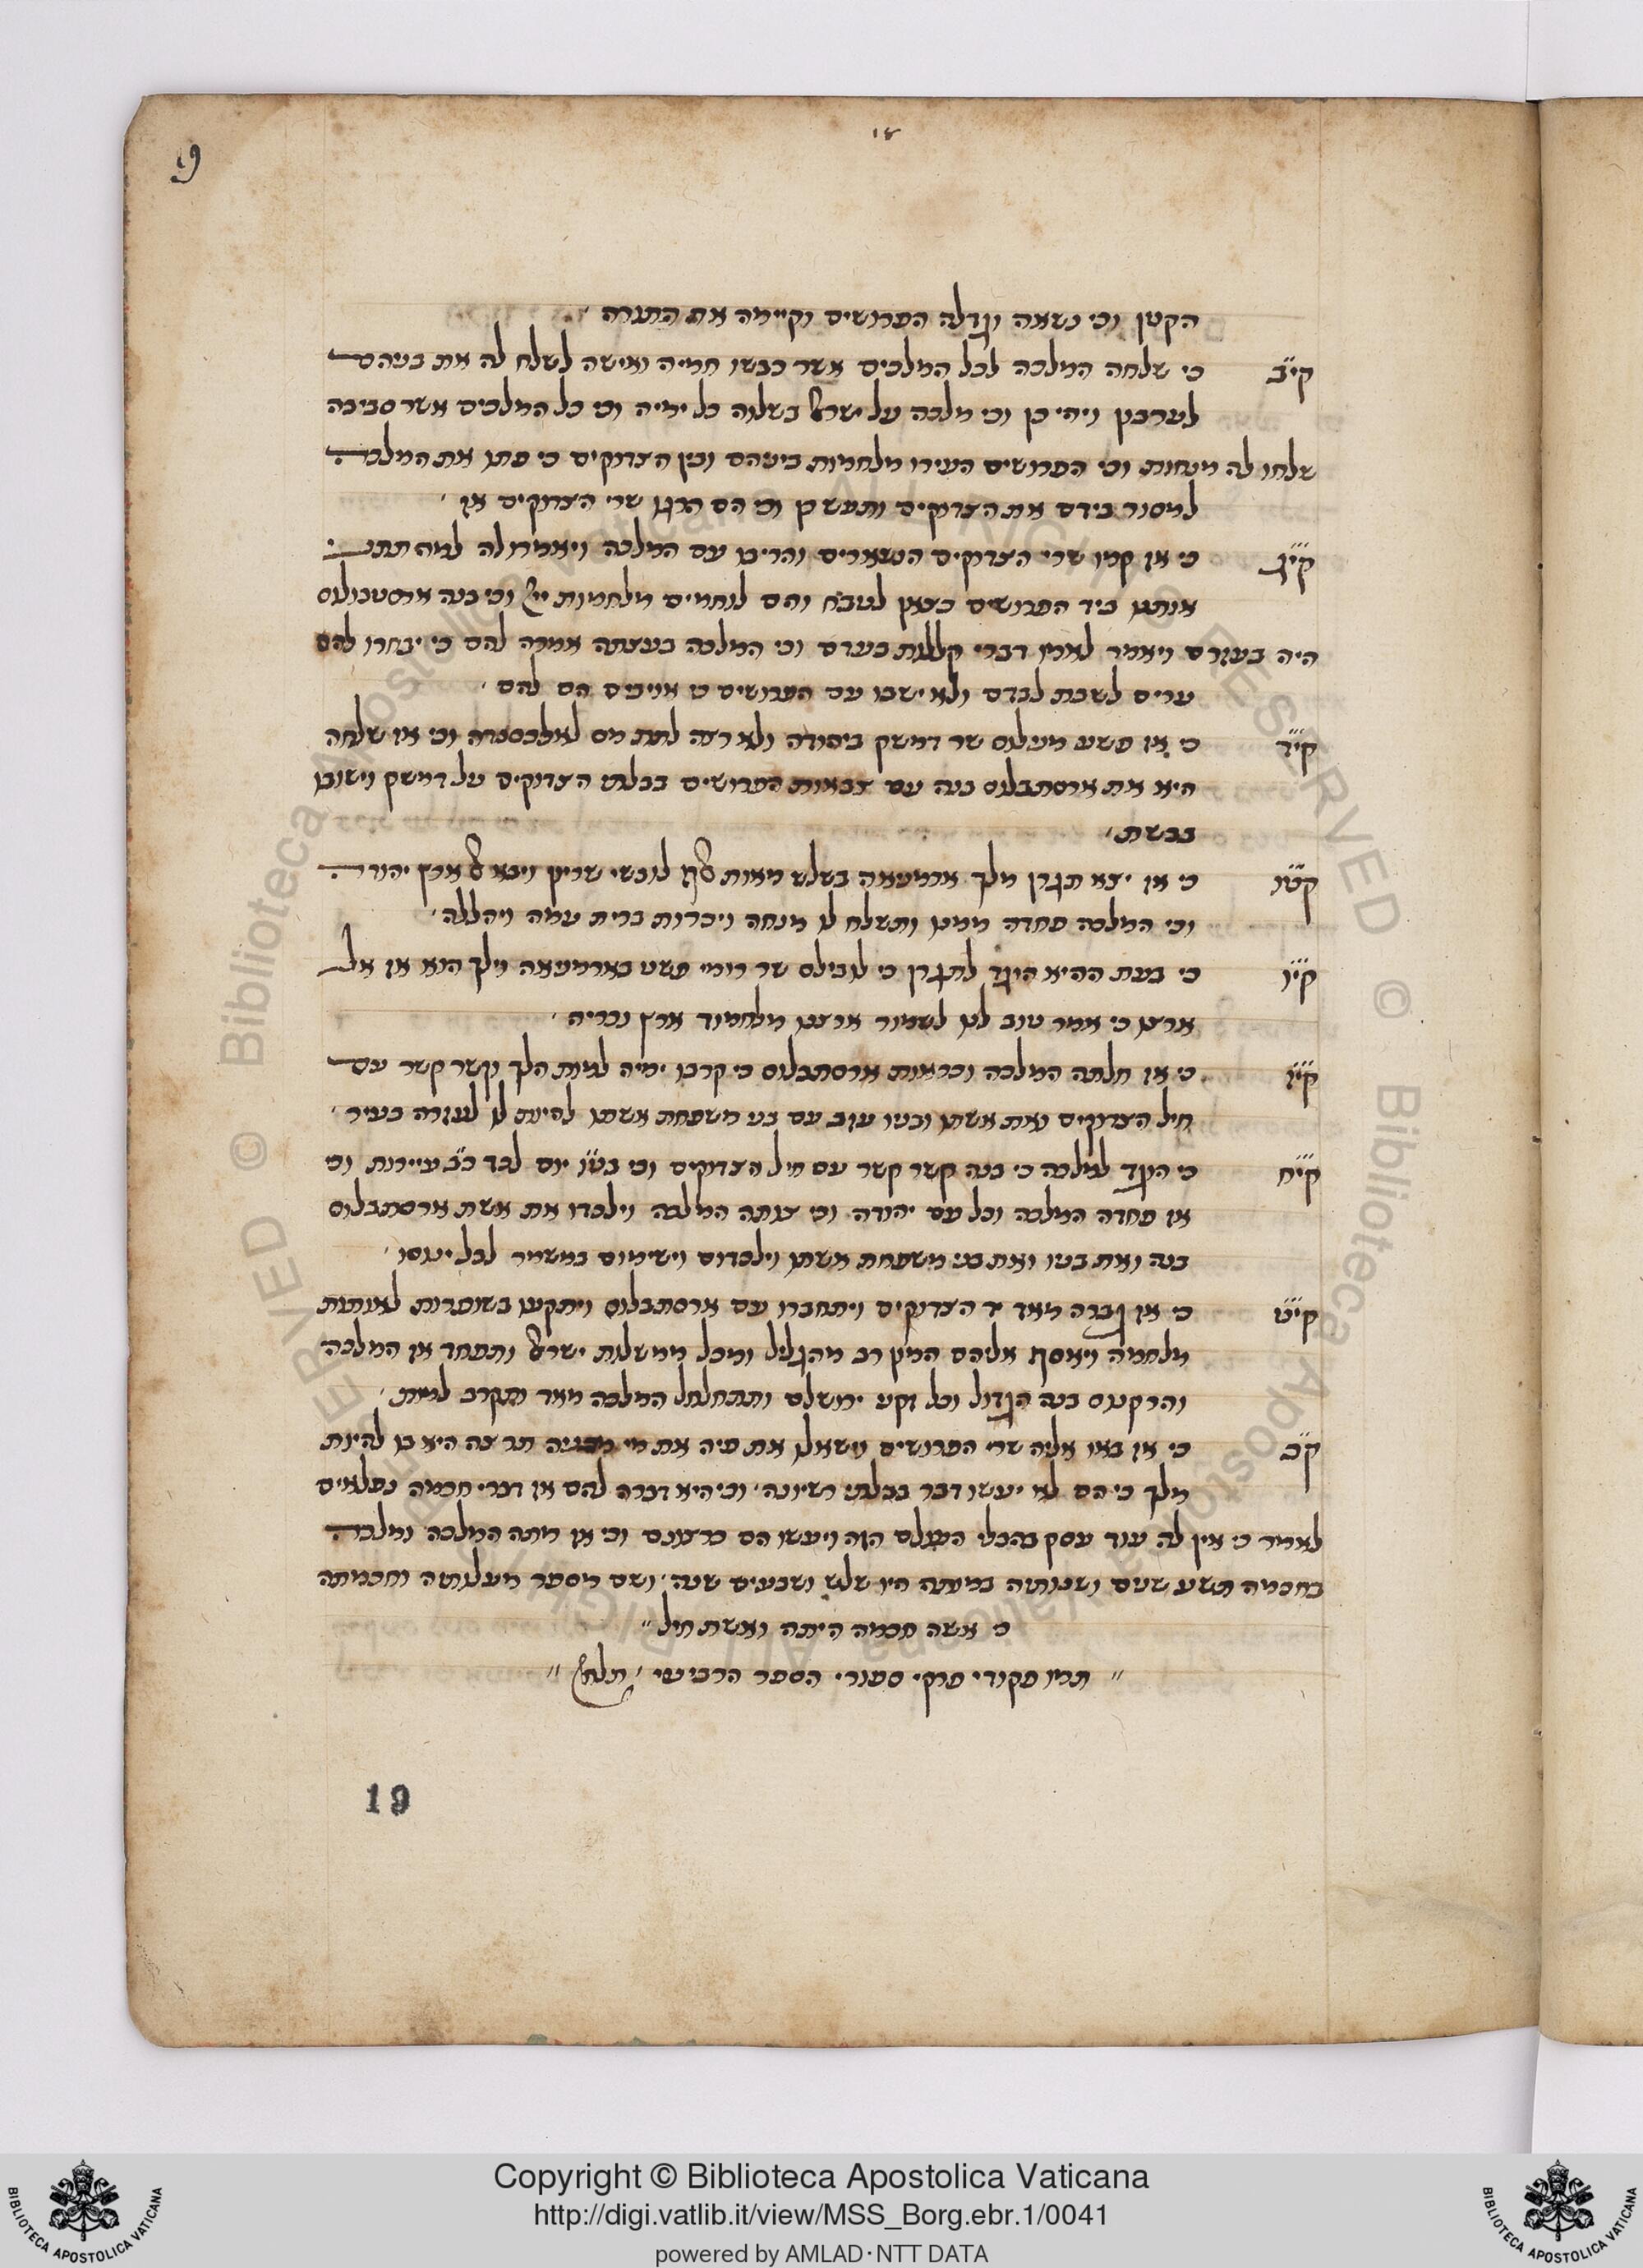 הקטן וכי נשאה וגדלה הפרושים וקיימה את התורה
קי״ב כי שלחה המלכה לכל המלכים אשר כבשו חמיה ואישה לשלח לה את בניהם
לערבון ויהי כן וכי מלכה על ישראל בשלוה כל ימיה וכי כל המלכים אשר סביבה
שלחו לה מנחות וכי הפרושים העירו מלחמות ביניהם ובין הצדוקים כי פתו את המלכה
למסור בידם את הצדוקים ותעש כן וכי הם הרגו שרי הצדוקים אז
קי״ג כי אז קמו שרי הצדוקים הנשארים והריבו עם המלכה ויאמרו לה למה תתני
אותנו ביד הפרושים כצאן לטבח והם לוחמים מלחמות ייי וכי בנה ארסטבולוס
היה בעוזרם ויאמר לאמו דברי קללות בעדם וכי המלכה בעצתה אמרה להם כי יבחרו להם
ערים לשבת לבדם ולא ישבו עם הפרושים כי אויבים הם להם
קי״ד כי אז פשע מנלוס שר דמשק ביהודה ולא רצה לתת מס לאלכסנדרה וכי אז שלחה
היא את ארסתבלוס בנה עם צבאות הפרושים בבלתי הצדוקים על דמשק וישובו
בבשת
קט״ו כי אז יצא תגרן מלך ארמעאה בשלש מאות אלף לובשי שריון ויבא אל ארץ יהודה
וכי המלכה פחדה ממנו ותשלח לו מנחה ויכרות ברית עמה ויהללה
קי״ו כי בעת ההיא הוגד לתגרן כי לובילס שר רומי פשט בארמעאה וילך הוא אז אל
ארצו כי אמר טוב לנו לשמור ארצנו מלחמוד ארץ נכריה
קי״ז כי אז חלתה המלכה וכראות ארסתבלוס כי קרבו ימיה למות הלך וקשר קשר עם
חיל הצדוקים ואת אשתו ובניו עזב עם בני משפחת אשתו להיות לו לעזרה בעיר
קי״ח כי הוגד למלכה כי בנה קשר קשר עם חיל הצדוקים וכי בט״ו יום לכד כ״ב עיירות וכי
אז פחדה המלכה וכל עם יהודה וכי צותה המלכה וילכדו את אשת ארסתבלוס
בנה ואת בניו ואת בני משפחת אשתו וילכדום וישימום במשמר לבל ינוסו
קי״ט כי אז גברה מאד יד הצדוקים ויתחברו עם ארסתבלוס ויתקעו בשופרות לאותות
מלחמה ויאסף אליהם המון רב מהגליל ומכל ממשלות ישראל ותפחד אז המלכה
והרקנוס בנה הגדול וכל זקני ירושלם ותתחלחל המלכה מאד ותקרב למות
ק״כ כי אז באו אליה שרי הפרושים וישאלו את פיה את מי מבניה תרצה היא כן להיות
מלך כי הם לא יעשו דבר בבלתי רשיונה וכי היא דברה להם אז דברי חכמה נפלאים
לאמר כי אין לה עוד עסק בהבלי העולם הזה ויעשו הם כרצונם וכי אז מתה המלכה ומלכה
בחכמה תשע שנים ושנותיה במותה היו שלש ושבעים שנה ושם מספר מעלותיה וחכמתה
כי אשה חכמה היתה ואשת חיל
תמו פקודי פרקי ספורי הספר הרביעי
19
Copyright © Biblioteca Apostolica Vaticana
http://digi.vatlib.it/view/MSS_Borg.ebr.1/0041
powered by AMLAD·NTT DATA
BIBLIOTECA APOSTOLICA VATICANA
BIBLIOTECA APOSTOLICA VATICANA